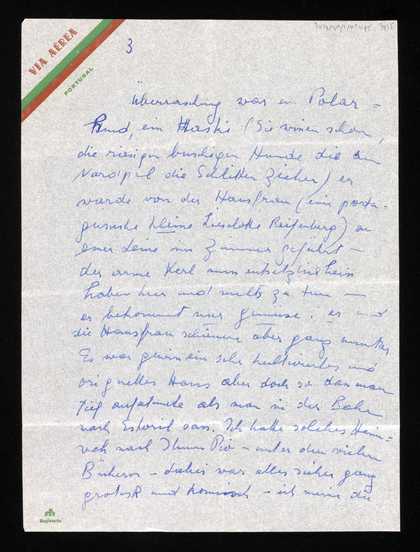 VIA AÉREA
PORTUGAL
3
Überraschung war ein Polar-
hund, ein Haski (Sie wissen schon,
die riesigen buschigen Hunde die am
Nordpol die Schlitten ziehen) er
wurde von der Hausfrau (ein portu-
giesische kleine Lieselotte Reifenberg) an
einer Leine ins Zimmer geführt –
der arme Kerl muss entsetzlich heiss
haben hier und nichts zu tun –
er bekommt nur gemüse. er und
die Hausfrau schienen aber ganz munter
Es war gewiss ein sehr kultiviertes und
originelles Haus aber doch so dass man
tief aufatmete als man in der Bahn
nach Estoril sass. Ich hatte solches Heim-
weh nach Ihnen – unter den vielen
Büchern – dabei war alles sicher ganz
grotesk und komisch – ich meine die